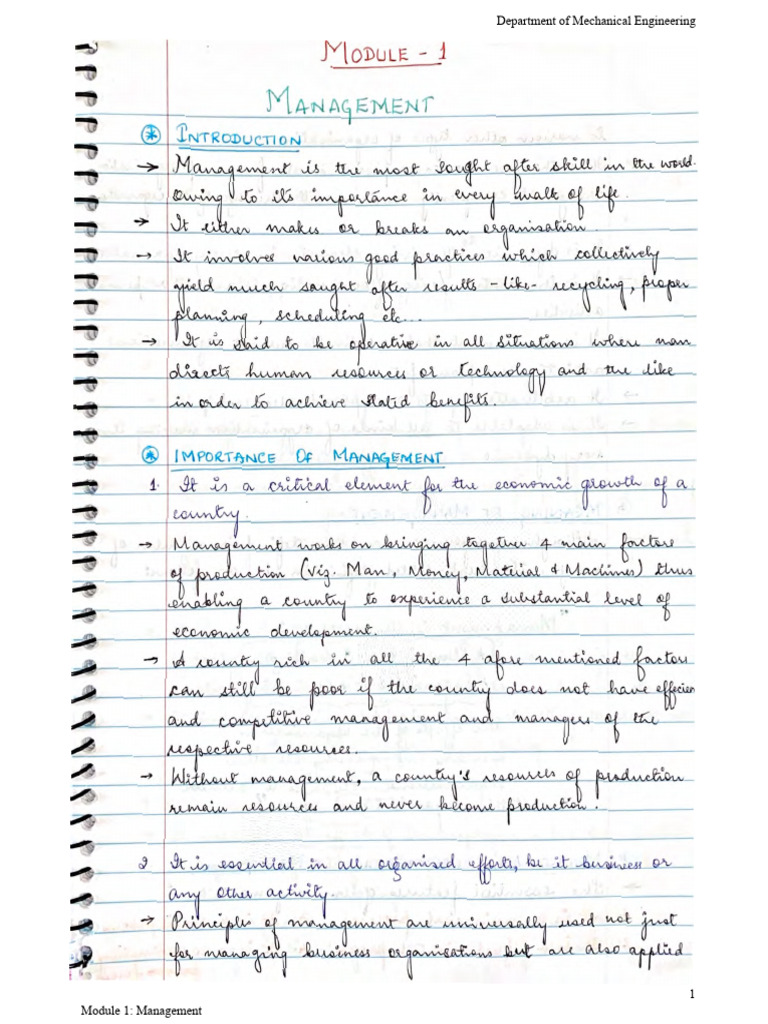 Department of Mechanical Engineering
MODULE - 1
MANAGEMENT
INTRODUCTION
→ Management is the most sought after skill in the world.
owing to its importance in every walk of life.
→ It either makes or breaks an organisation.
→ It involves various good practices which collectively
yield much sought after results - like - recycling, proper
planning, scheduling etc...
→ It is said to be operative in all situations where man
directs human resources or technology and the like
in order to achieve stated benefits.
IMPORTANCE OF MANAGEMENT
1. It is a critical element for the economic growth of a
country.
→ Management works on bringing together 4 main factors
of production (viz. Man, Money, Material & Machines) thus
enabling a country to experience a substantial level of
economic development.
→ A country rich in all the 4 afore mentioned factors
can still be poor if the country does not have efficien
and competitive management and managers of the
respective resources.
→ Without management, a country's resources of production
remain resources and never become production.
2 It is essential in all organised efforts, be it business or
any other activity.
→ Principles of management are universally used not just
for managing business organisations but are also applied
1
Module 1: Management